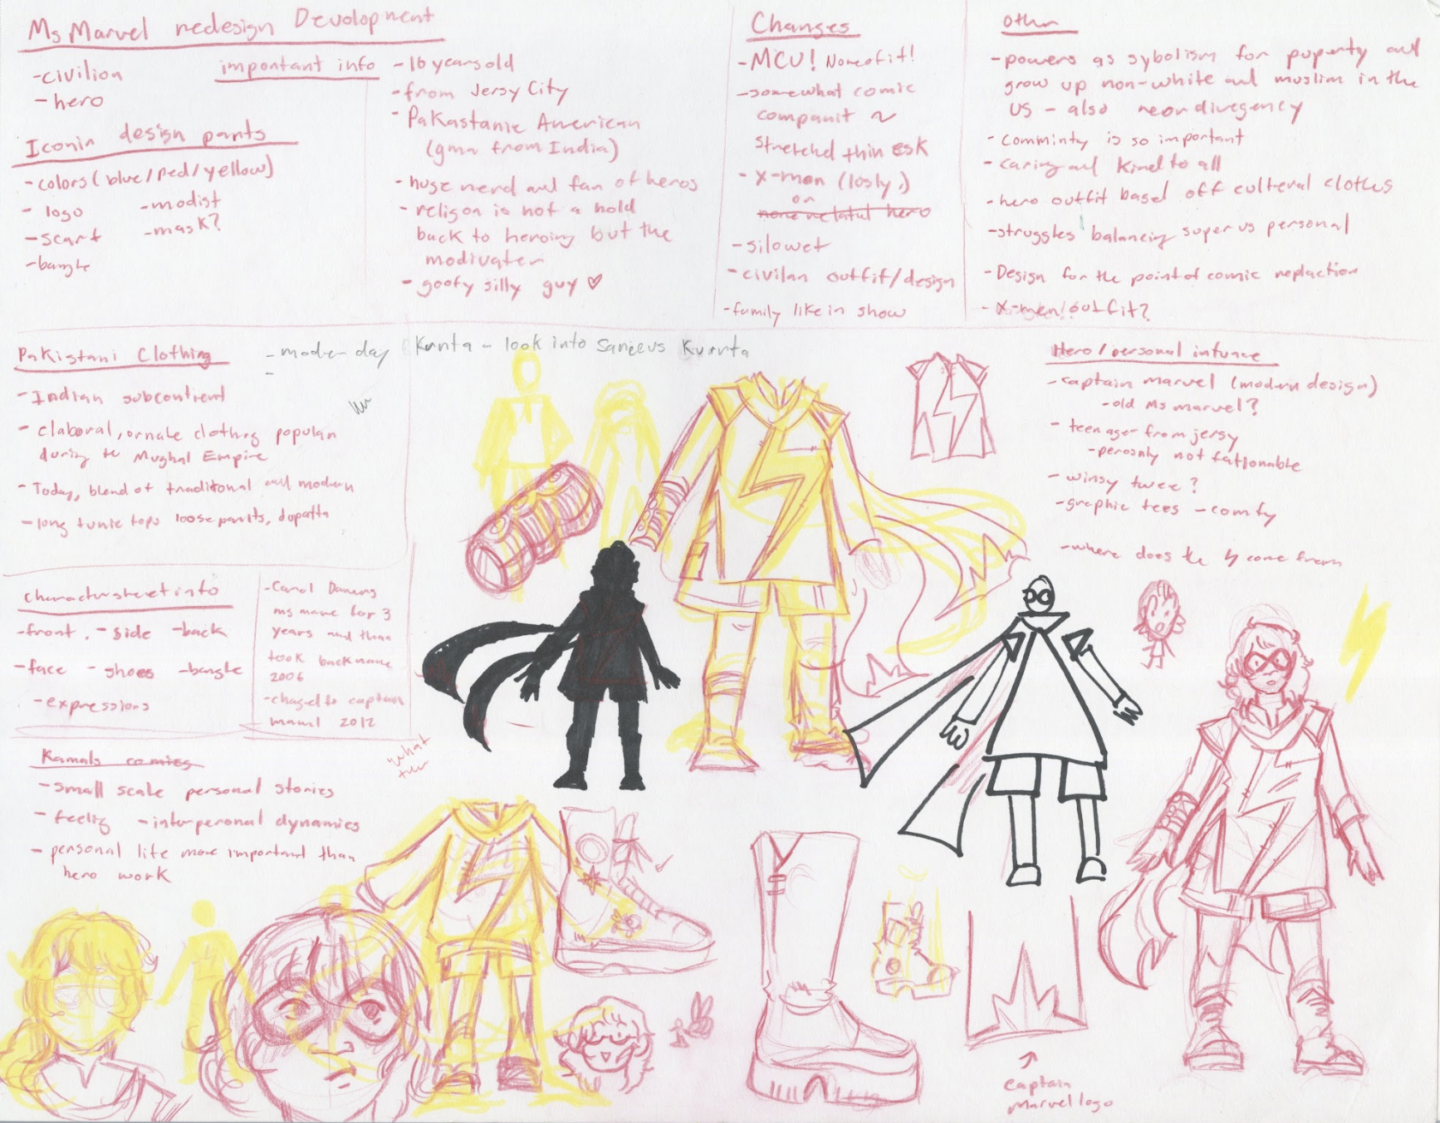 Ms Marvel redesign Devolopment
-civilion
-hero
important info
Iconin design parts
-colors (blue/red/yellow)
- logo
-scarf
-bangle
-modist
-mask?
-16 years old
-from Jersy City
-Pakastanie American
(gma from India)
-huge nerd and fan of heros
-religon is not a hold
back to heroing but the
modivater
-goofy silly guy ♡
Changes
-MCU! None of it!
-somewhat comic
stretched thin esk
-X-men (losly)
or
-silowet
-civilan outfit/design
-family like in show
other
-powers as sybolism for puperty and
grow up non-white and muslim in the
US - also neordivegency
-comminty is so important
-caring and kind to all
-hero outfit based off cultural clothes
-struggles balancing super vs personal
-Design for the point of comic replaction
-X-men outfit?
Pakistani Clothing
-Indian subcontient
-elaboral, ornake clothing popular
during te Mughal Empire
-Today, blend of traditional and modern
-long tunic tops loose pants, dupatta
-moder-day Kurta - look into Sanjeevs Kurta
Hero/personal infuance
-captain marvel (modern design)
-old Ms marvel?
-teenager from jersy
-perosnly not fationable
-winsy twee?
-graphic tees -comfy
-where does te ϟ come from
character sheet info
-front -side -back
-face -shoes -bangle
-expressions
-Carol Danvers
ms marvel for 3
years and than
took back name
2006
-chaged to captain
marvel 2012
Kamals comics
-small scale personal stories
-feeling -interperonal dynamics
-personal life more important than
hero work
what
captain
marvel logo